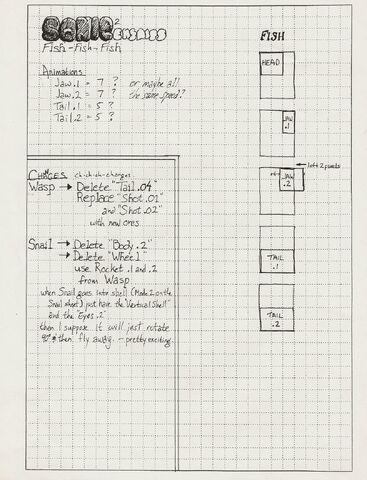 SONIC 2
Fish - Fish - Fish
Animations:
Jaw.1 = 7 ? or maybe all
Jaw.2 = 7 ? the same speed?
Tail.1 = 5 ?
Tail.2 = 5 ?
CHANGES ch-ch-ch-changes
Wasp → Delete "Tail.04"
Replace "Shot.01"
and "Shot.02"
with new ones
Snail → Delete "Body.2"
→ Delete "Wheel"
use Rocket .1 and .2
from Wasp
when Snail goes into shell (Mode 2 on the
Snail sheet) just have the "Vertical Shell"
and the "Eyes.2"
then I suppose it will just rotate
90° & then fly away. - pretty exciting.
FISH
HEAD
JAW
.1
← left 2 pixels
JAW
.2
TAIL
.1
TAIL
.2